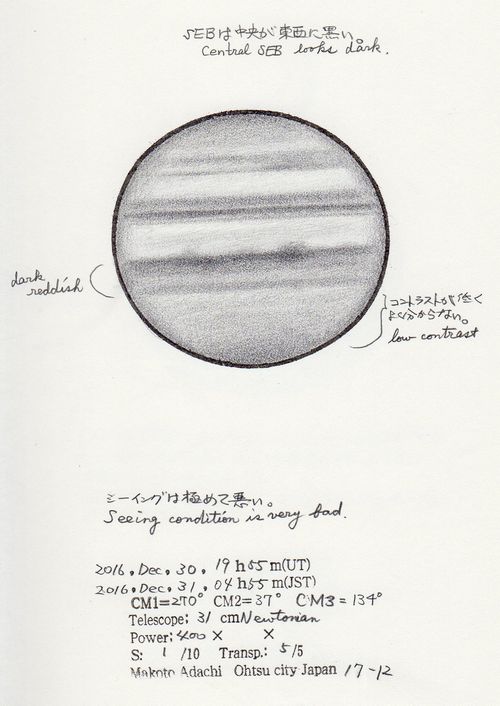 SEBは中央が東西に黒い。
Central SEB looks dark.
dark
reddish
コントラストが低く
よく分からない。
low contrast
シーイングは極めて悪い。
Seeing condition is very bad.
2016, Dec, 30, 19 h 55 m(UT)
2016, Dec, 31, 04 h 55 m(JST)
CM1=270° CM2=37° CM3=134°
Telescope: 31 cm Newtonian
Power: 400 × ×
S: 1 /10 Transp.: 5/5
Makoto Adachi Ohtsu city Japan 17-12